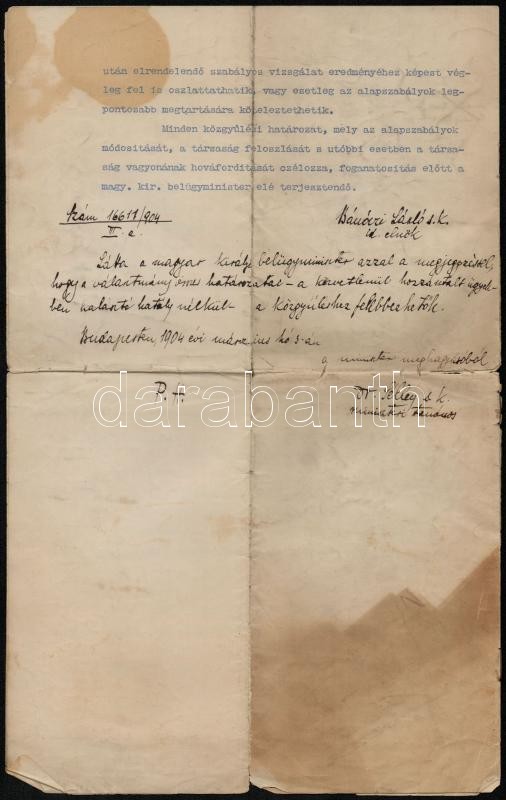 után elrendelendő szabályos vizsgálat eredményéhez képest vég-
leg fel is oszlattathatik, vagy esetleg az alapszabályok leg-
pontosabb megtartására köteleztethetik.
Minden közgyülési határozat, mely az alapszabályok
módositását, a társaság feloszlását s utóbbi esetben a társa-
ság vagyonának hováforditását célozza, foganatositás előtt a
magy. kir. belügyminister elé terjesztendő.
Szám 16611/904
III. a.
Bánóczi László s.k.
id. elnök
Látta a magyar királyi belügyminiszter azzal a megjegyzéssel,
hogy a választmány összes határozatai - a közvetlenül hozzáutalt ügyek-
ben választó hatály nélkül - a közgyüléshez felebbezhetők.
Budapesten, 1904 évi március hó 3-án
a miniszter meghagyásából
P.H.
Dr. Selley s.k.
miniszteri tanácsos
darabanth